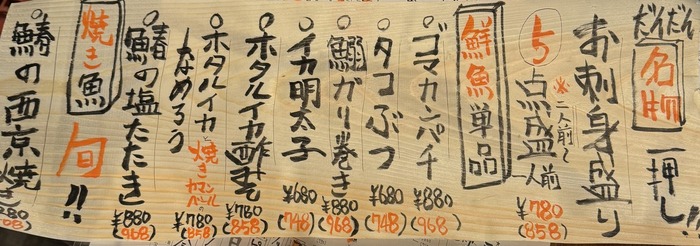 だんだん
名物 一押し!!
お刺身盛り
5点盛 一人前 ¥780 (858)
※二人前〜
鮮魚単品
○ゴマカンパチ ¥880 (968)
○タコぶつ ¥680 (748)
○鰯ガリ巻き ¥880 (968)
○イカ明太子 ¥680 (748)
○ホタルイカ酢みそ ¥780 (858)
○ホタルイカ
なめろう ¥780 (858)
焼きカマンベールの
○鰆の塩たたき ¥880 (968)
焼き魚 旬!!
○鰆の西京焼き